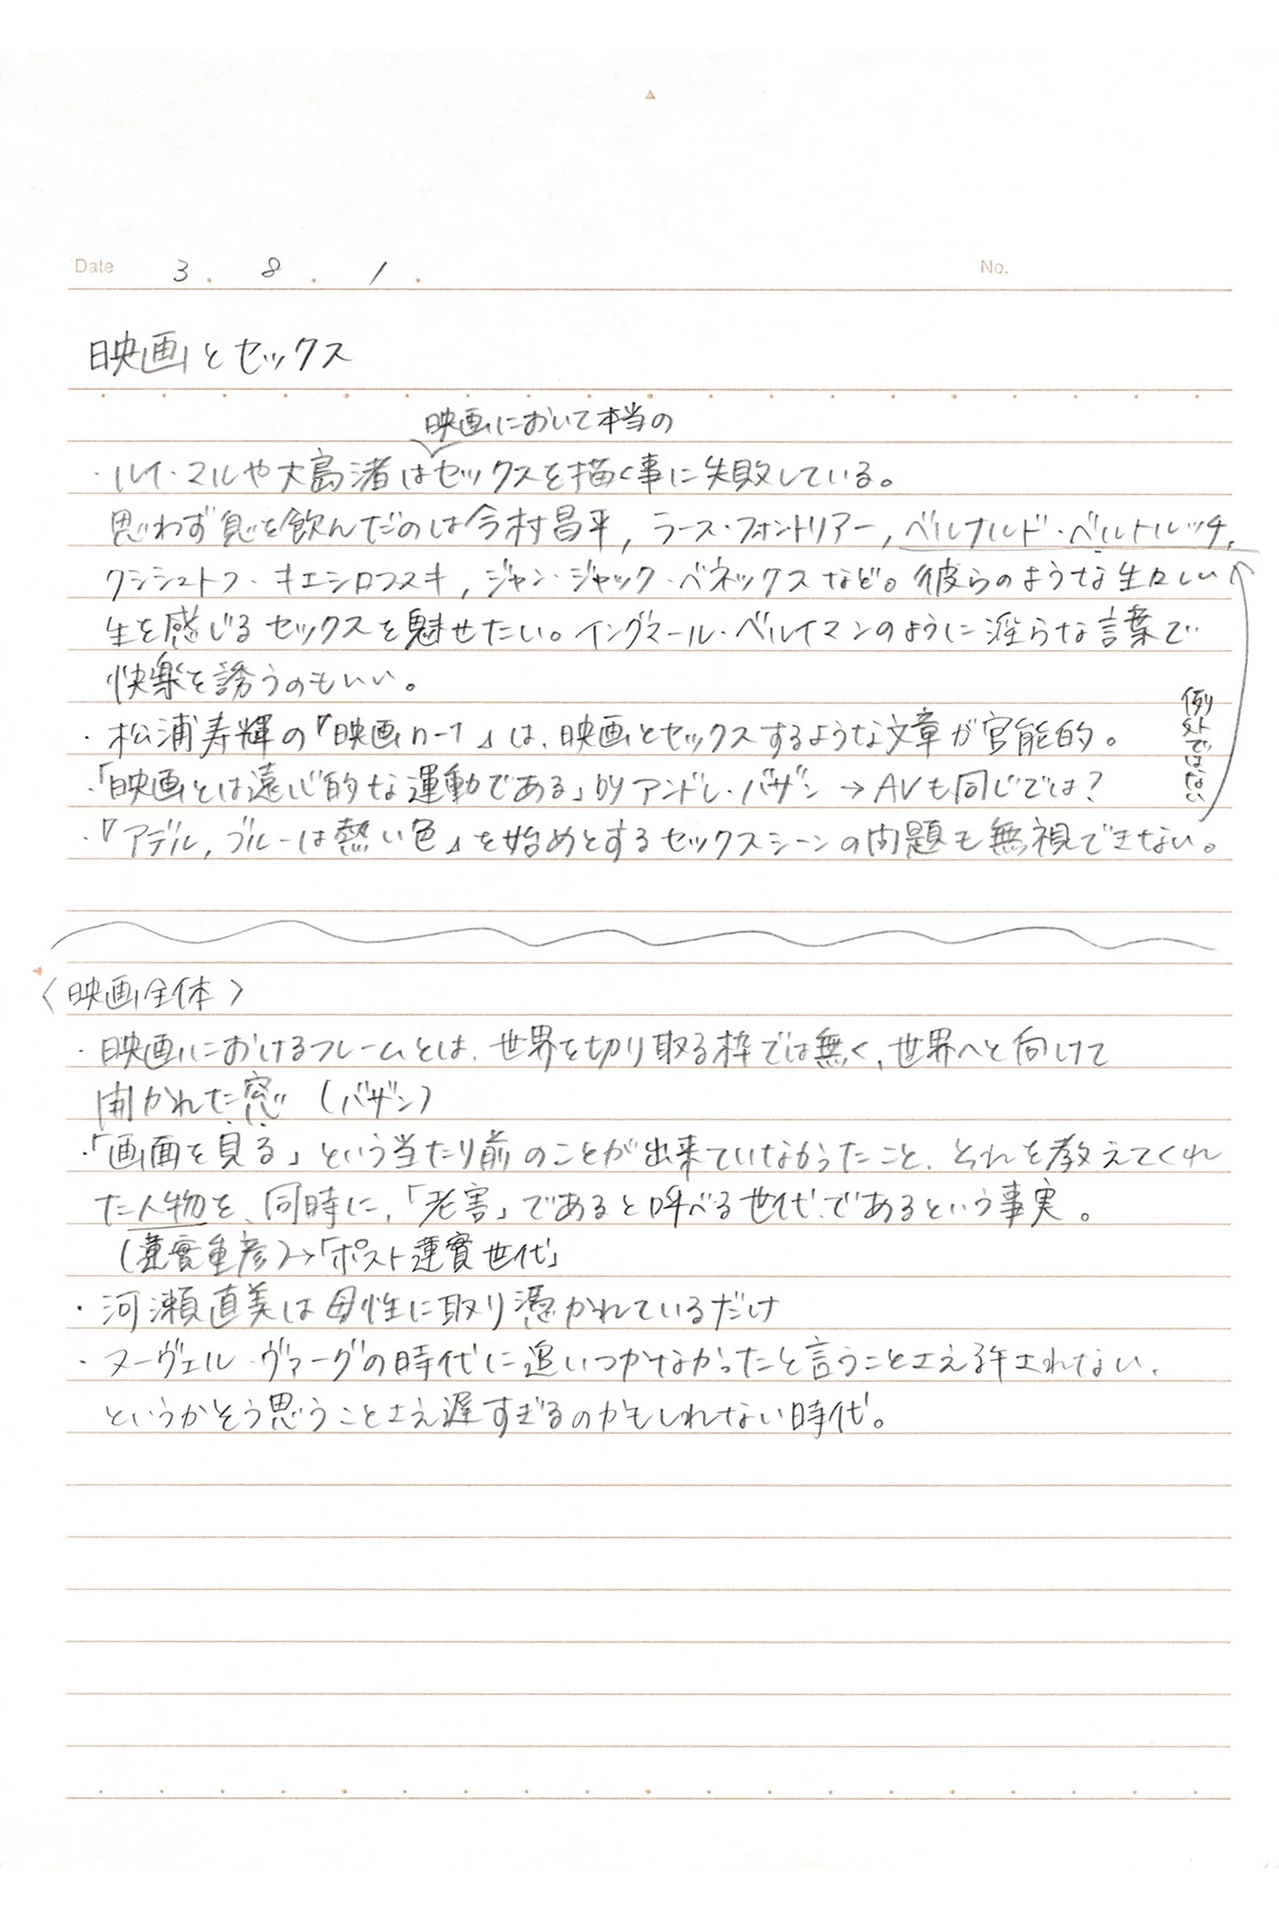 Date 3. 8. 1.
No.
映画とセックス
映画において本当の
・ルイ・マルや大島渚はセックスを描く事に失敗している。
思わず息を飲んだのは今村昌平, ラース・フォントリアー, ベルナルド・ベルトルッチ,
クシシュトフ・キエシロフスキ, ジャン・ジャック・ベネックスなど。彼らのような生々しい
生を感じるセックスを魅せたい。イングマール・ベルイマンのように淫らな言葉で
快楽を誘うのもいい。
・松浦寿輝の『映画n-1』は、映画とセックスするような文章が官能的。
・「映画とは遠心的な運動である」byアンドレ・バザン → AVも同じでは?
・『アデル, ブルーは熱い色』を始めとするセックスシーンの問題も無視できない。
例外ではない
〈映画全体〉
・映画におけるフレームとは、世界を切り取る枠では無く、世界へと向けて
開かれた窓 (バザン)
・「画面を見る」という当たり前のことが出来ていなかったこと、それを教えてくれ
た人物を、同時に、「老害」であると呼べる世代であるという事実。
(蓮實重彦)→「ポスト蓮實世代」
・河瀬直美は母性に取り憑かれているだけ
・ヌーヴェル・ヴァーグの時代に追いつかなかったと言うことさえ許されない、
というかそう思うことさえ遅すぎるのかもしれない時代。